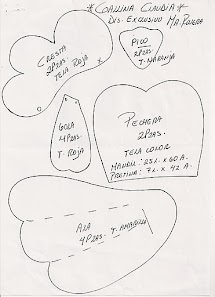 *GALLINA CLAUDIA*
DIS. EXCLUSIVO MA. RIVERA
CRESTA
2PZAS.
TELA ROJA
PICO
2PZAS
T. NARANJA
GOLA
4 PZAS.
T. ROJA
PECHERA
2PZAS.
TELA COLOR
MANDIL: 25 L. X 60 A.
PRETINA: 7 L. X 42 A.
ALA
4PZAS. T. AMARILLA